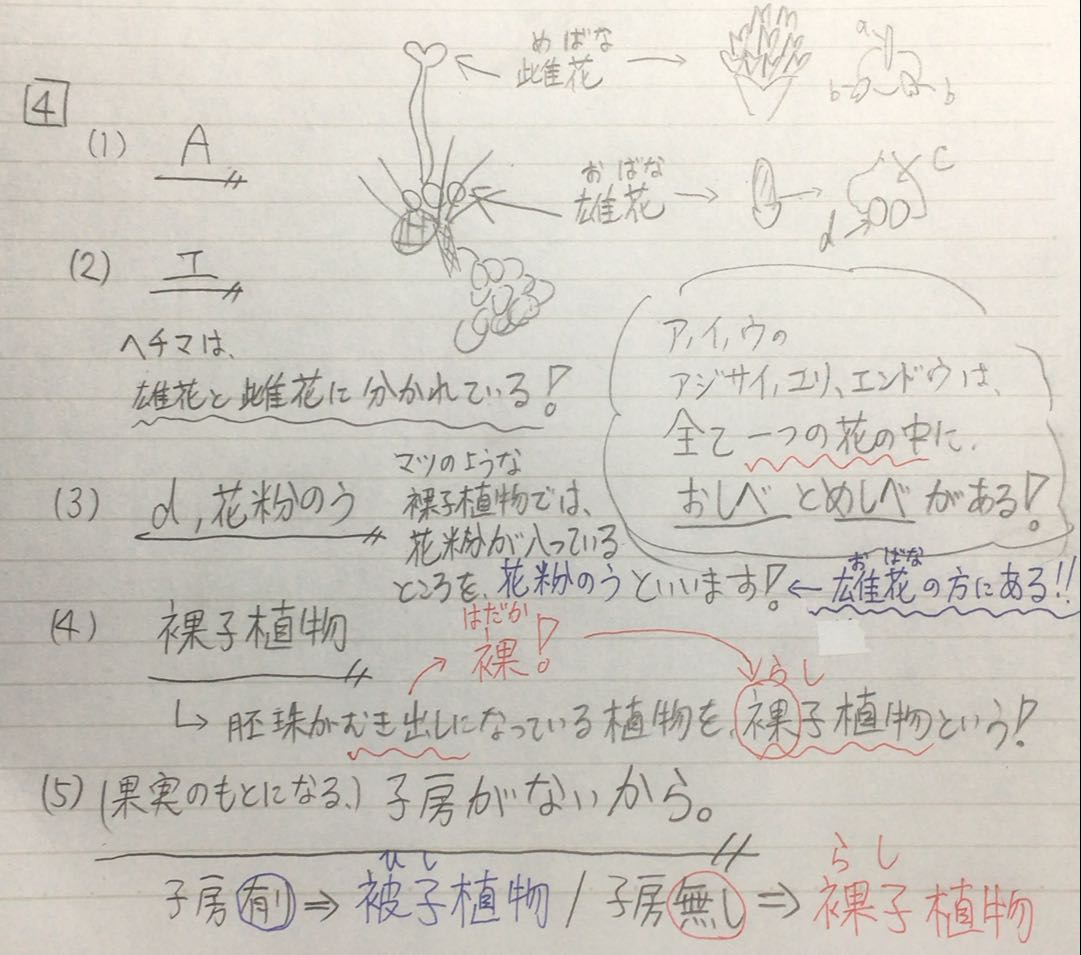 4
(1) A
めばな
雌花
a
b
b
おばな
雄花
c
d
(2) エ
ヘチマは、
雄花と雌花に分かれている!
ア,イ,ウの
アジサイ,ユリ、エンドウは、
全て一つの花の中に、
おしべとめしべがある!
(3) d,花粉のう
マツのような
裸子植物では、
花粉が入っている
ところを、花粉のうといいます!←雄花の方にある!!
おばな
(4) 裸子植物
はだか
裸!
らし
↳胚珠がむき出しになっている植物を、裸子植物という!
(5) (果実のもとになる、)子房がないから。
ひし
らし
子房有り⇒被子植物/子房無し⇒裸子植物